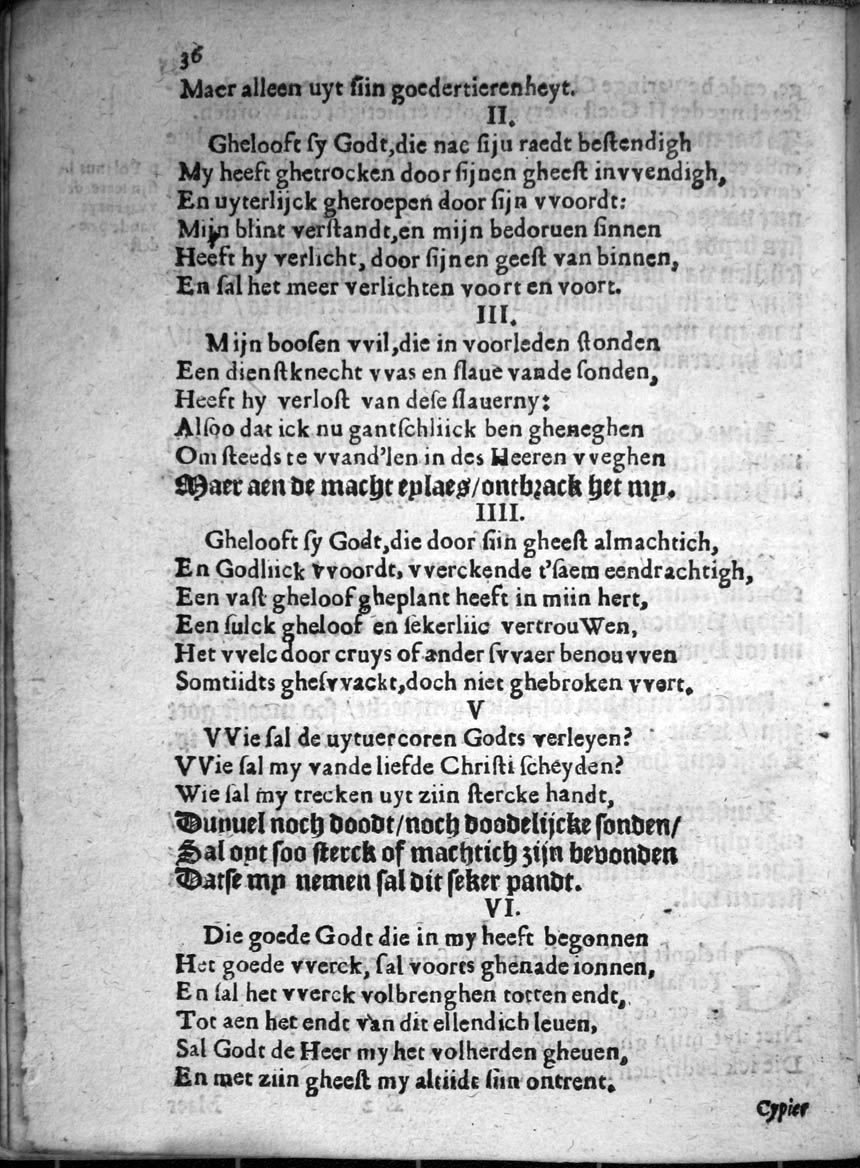 36
Maer alleen uyt ſiin goedertierenheyt.
II.
Ghelooft ſy Godt, die nae ſiju raedt beſtendigh
My heeft ghetrocken door ſijnen gheeſt invvendigh,
En uyterlijck gheroepen door ſijn vvoordt:
Mijn blint verſtandt, en mijn bedoruen ſinnen
Heeft hy verlicht, door ſijnen geeſt van binnen,
En ſal het meer verlichten voort en voort.
III.
Mijn booſen vvil, die in voorleden ſtonden
Een dienſtknecht vvas en ſlaue vande ſonden,
Heeft hy verloſt van deſe ſlauerny:
Alſoo dat ick nu gantſchliick ben gheneghen
Om ſteeds te vvand'len in des Heeren vveghen
Maer aen de macht eylaes/ ontbrack het my.
IIII.
Ghelooft ſy Godt, die door ſiin gheeſt almachtich,
En Godliick vvoordt, vverckende t'ſaem eendrachtigh,
Een vaſt gheloof gheplant heeft in miin hert,
Een ſulck gheloof en ſekerliic vertrouWen,
Het vvelc door cruys of ander ſvvaer benouvven
Somtiidts gheſvvackt, doch niet ghebroken vvert.
V
VVie ſal de uytuercoren Godts verleyen?
VVie ſal my vande liefde Chriſti ſcheyden?
Wie ſal my trecken uyt ziin ſtercke handt,
Duyuel noch doodt/ noch doodelijcke ſonden/
Sal oyt ſoo ſterck of machtich zijn bevonden
Datſe my nemen ſal dit ſeker pandt.
VI.
Die goede Godt die in my heeft begonnen
Het goede vverck, ſal voorts ghenade ionnen,
En ſal het vverck volbrenghen totten endt,
Tot aen het endt van dit ellendich leuen,
Sal Godt de Heer my het volherden gheuen,
En met ziin gheeſt my altiidt ſiin ontrent.
Cypier